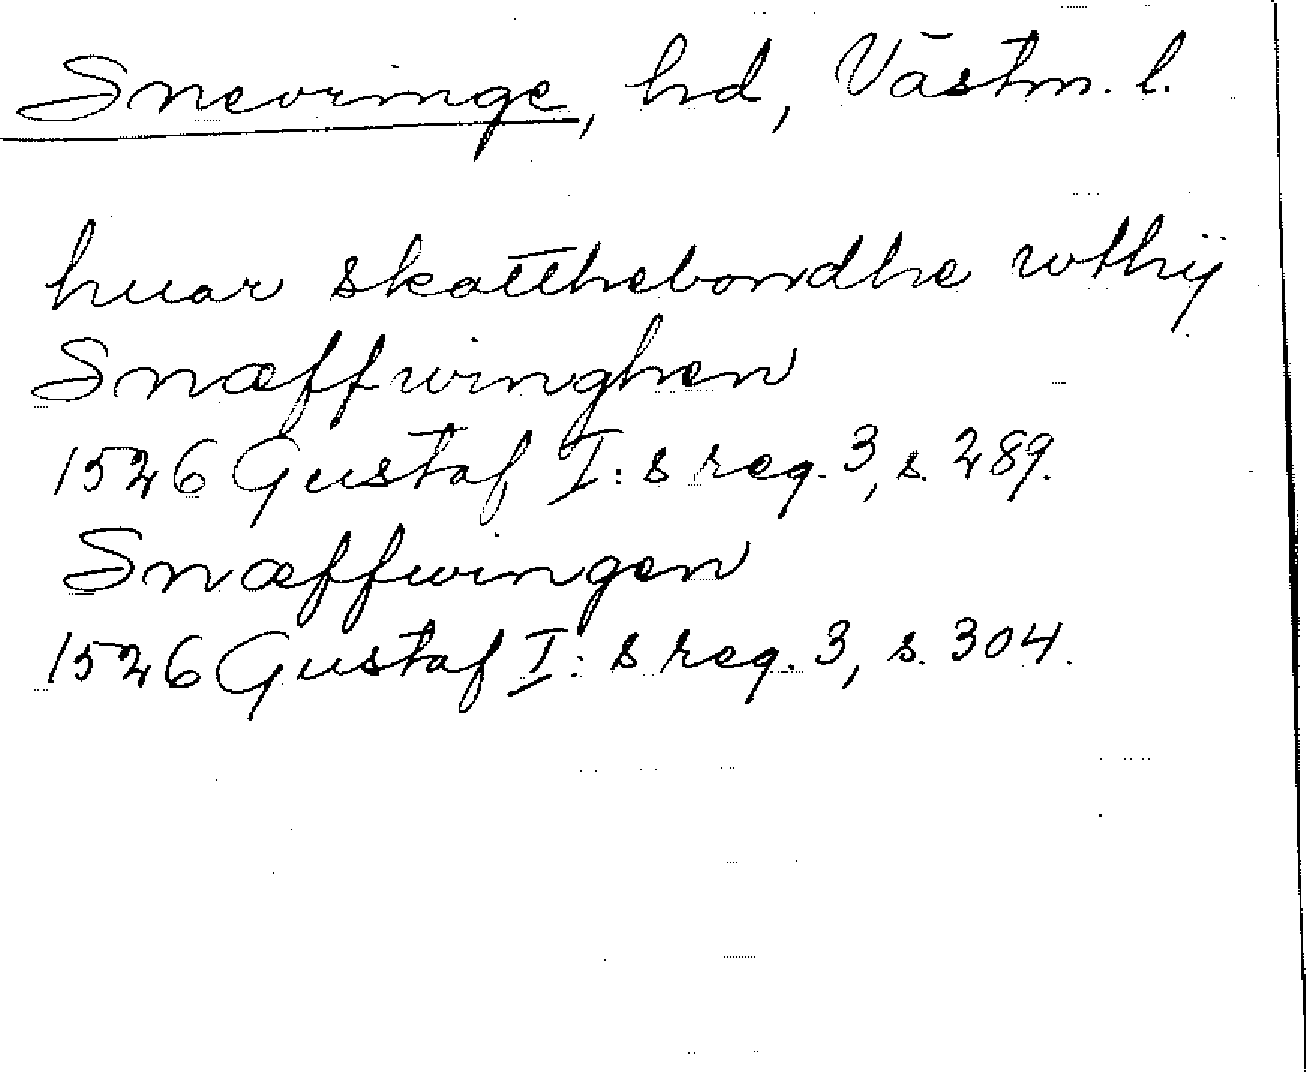 Snevringe, hd, Västm. l.
huar skatthebondhe wthij
Snæffwinghen
1526 Gustaf I:s reg. 3, s. 289.
Snæffwingen
1526 Gustaf I:s reg. 3, s. 304.